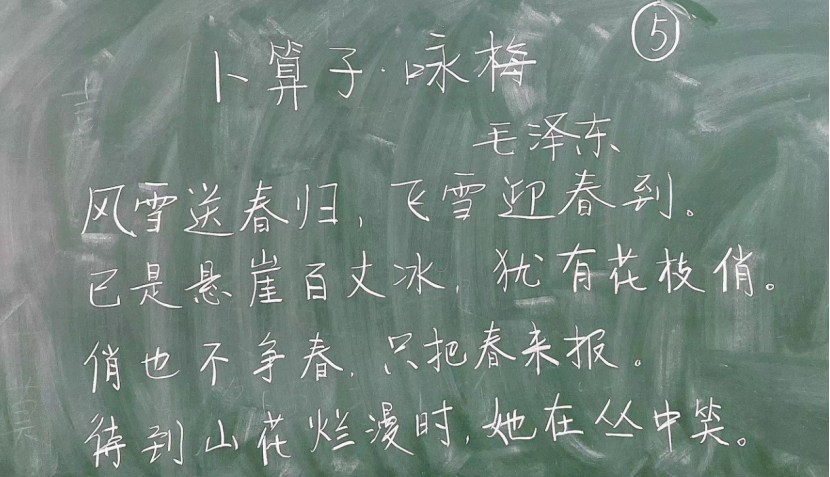 ⑤
卜算子·咏梅
毛泽东
风雪送春归,飞雪迎春到。
已是悬崖百丈冰,犹有花枝俏。
俏也不争春,只把春来报。
待到山花烂漫时,她在丛中笑。